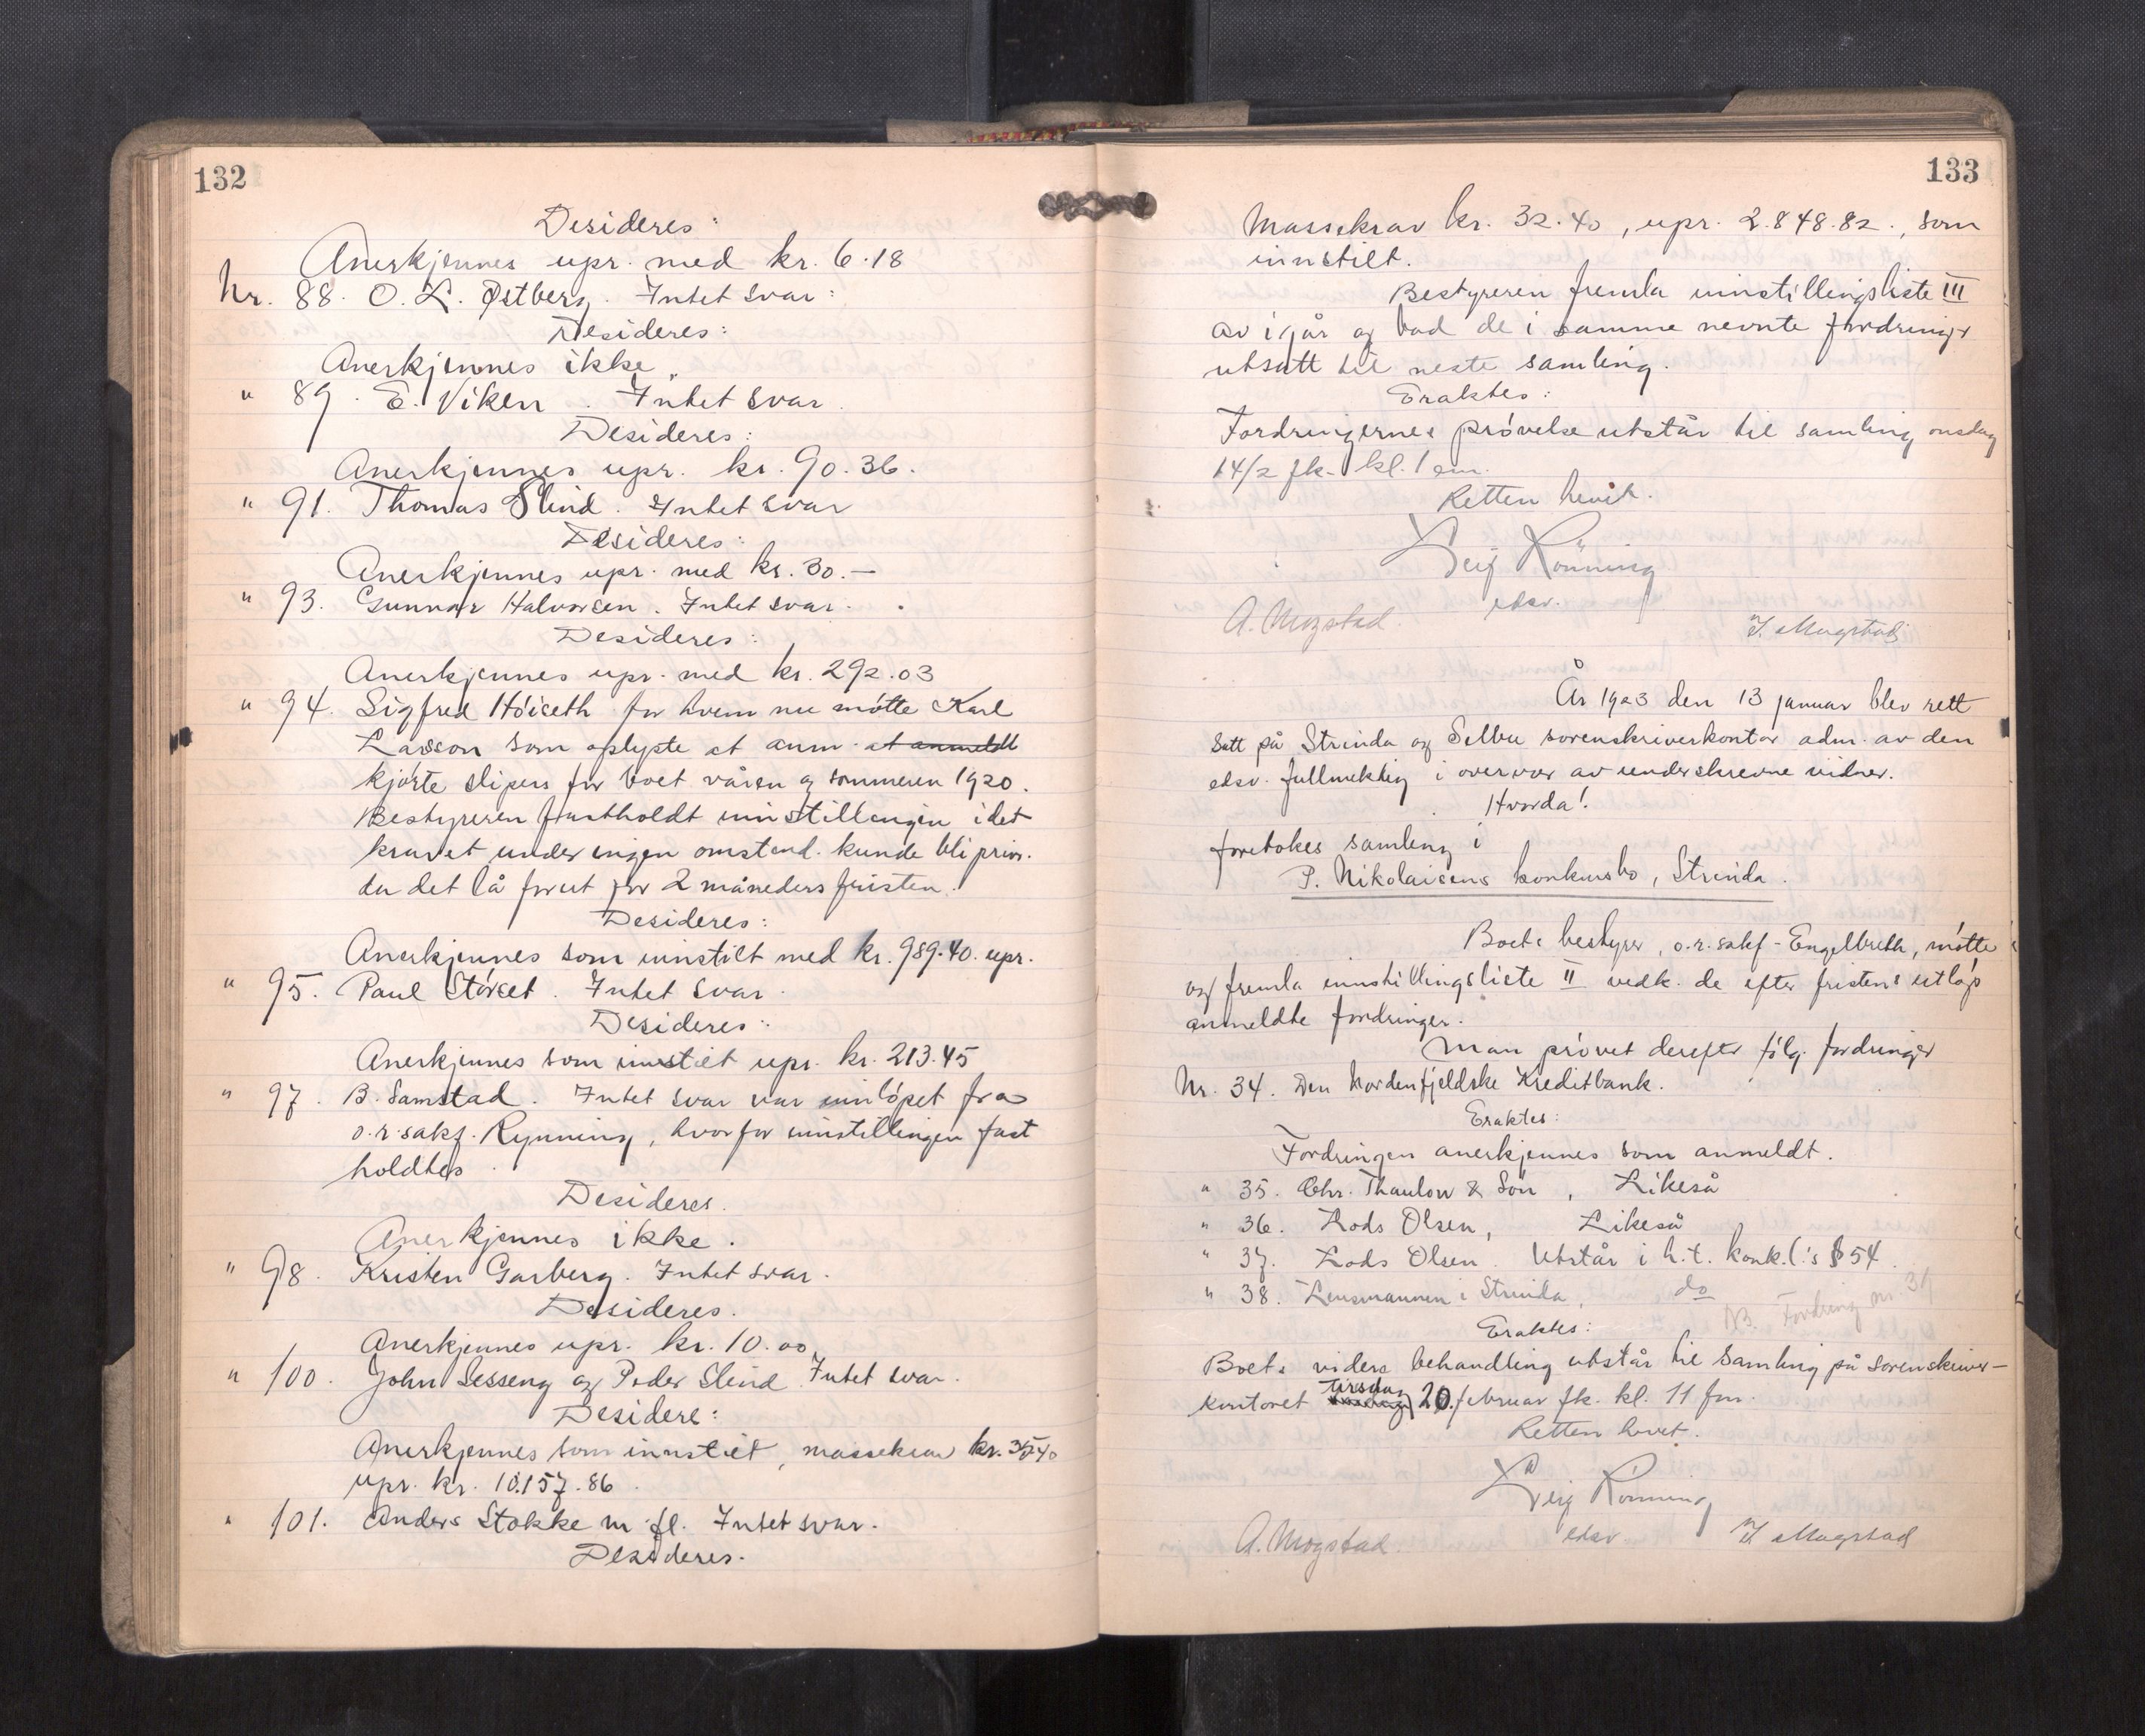 132
Desideres:
Anerkjennes upr. med kr. 6.18
Nr. 88. O. L. Østberg. Intet svar:
Desideres:
Anerkjennes ikke.
" 89. E. Viken. Intet svar.
Desideres:
Anerkjennes upr. kr. 90.36.
" 91. Thomas Slind. Intet svar
Desideres:
Anerkjennes upr. med kr. 30.—
" 93. Gunnar Halvorsen. Intet svar.
Desideres:
Anerkjennes upr. med kr. 292.03
" 94. Sigfred Höiseth for hvem nu møtte Karl
Larsson som oplyste at anm. at anmeldt
kjørte slipers for boet våren og sommeren 1920.
Bestyreren fastholdt innstillingen idet
kravet under ingen omstend. kunde bli priv.
da det lå forut for 2 måneders fristen.
Desideres:
Anerkjennes som innstilt med kr. 989.40. upr.
" 95. Paul Størset. Intet svar.
Desideres:
Anerkjennes som innstilt upr. kr. 213.45
" 97. B. Samstad. Intet svar var innløpet fra
o.r.sakf. Rynning, hvorfor innstillingen fast
holdtes.
Desideres.
Anerkjennes ikke.
" 98. Kristen Garberg. Intet svar.
Desideres.
Anerkjennes upr. kr. 10.00.
" 100. John Sesseng og Peder Slind. Intet svar.
Desidere:
Anerkjennes som innstilt, massekrav kr.
upr. kr. 10.157.86
" 101. Anders Stokke m. fl. Intet svar.
Desideres.
133
Massekrav kr. 32.40, upr. 2.848.82., som
innstilt.
Bestyreren fremla innstillingsliste III
av igår og bad de i samme nevnte fordringer
utsatt til neste samling.
Eraktes:
Fordringernes prøvelse utstår til samling onsdag
14/2 fk. kl. 1 em.
Retten hevet.
Leif Rönning
edsv.
A. Mogstad. I. Mogstad
År 1923 den 13 januar blev rett
satt på Strinda og Selbu sorenskriverkontor adm. av den
edsv. fullmektig i overvær av underskrevne vidner.
Hvorda!
foretokes samling i
P. Nikolaisens konkursbo, Strinda.
Boets bestyrer, o.r.sakf. Engelbreth, møtte
og fremla innstillingsliste II vedk. de efter fristens utløp
anmeldte fordringer.
Man prøvet derefter følg. fordringer
Nr. 34. Den Nordenfjeldske Kreditbank.
Eraktes:
Fordringen anerkjennes som anmeldt.
" 35. Chr. Thaulow & Søn, Likeså
" 36. Lods Olsen, Likeså
" 37. Lods Olsen. Utstår i h.t. konk.l.'s § 54.
" 38. Lensmannen i Strinda, do
NB. Fordring nr. 31
Eraktes:
Boets videre behandling utstår til samling på sorenskriver-
kontoret tirsdag 20. februar fk. kl. 11 fm.
Retten hevet.
Leif Rönning
edsv.
A. Mogstad I. Mogstad